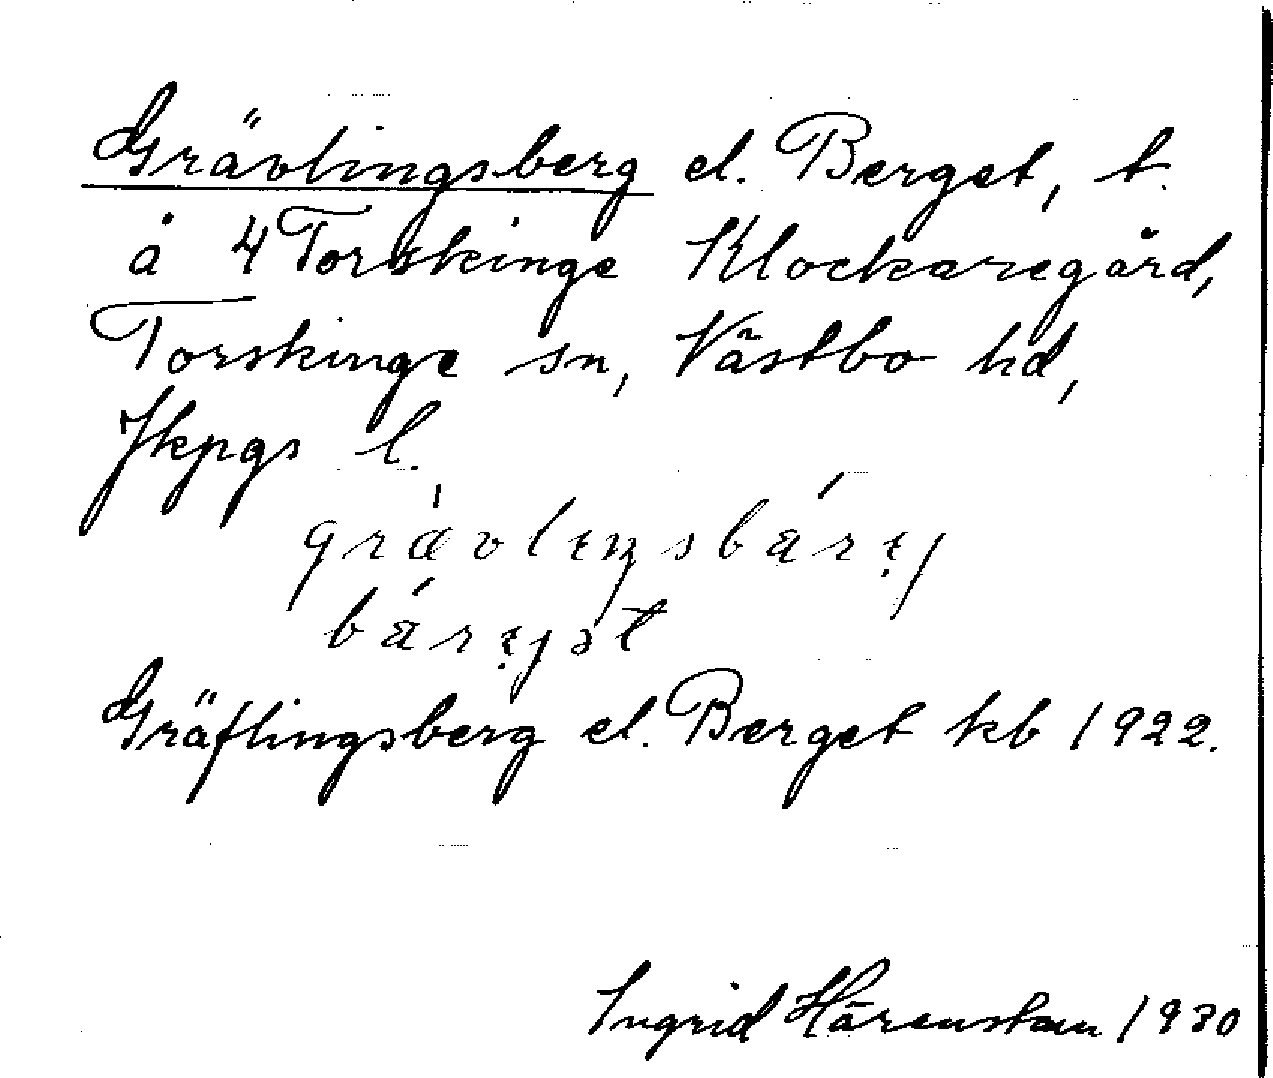 Grävlingsberg el. Berget, t.
å 4 Torskinge Klockaregård,
Torskinge sn, Västbo hd,
Jkpgs l.
Gräflingsberg el. Berget kb 1922.
Ingrid Härenstam 1930